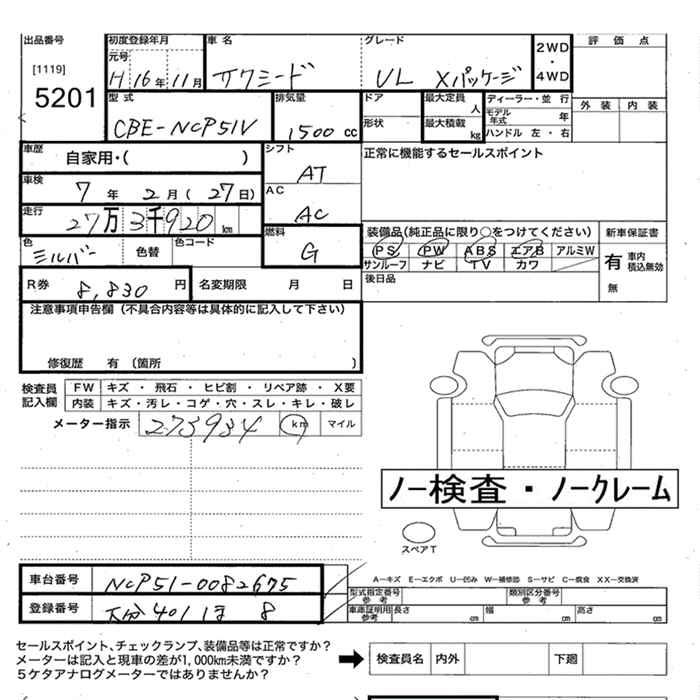 出品番号 初度登録年月 車名 グレード 2WD・4WD 評価点
[1119] 元号
5201 H16年11月 サクシード UL Xパッケージ
型式 排気量 ドア 最大定員 人 ディーラー・並行 外装 内装
CBE-NCP51V 1500cc 形状 最大積載 kg モデル年式 年
ハンドル 左・右
車歴 自家用・( ) シフト AT 正常に機能するセールスポイント
車検 7年2月(27日) AC AC
走行 27万3千920km 燃料 G 装備品(純正品に限り○をつけてください) 新車保証書
色 シルバー 色替 色コード PS PW ABS エアB アルミW 有 車内積込無効
サンルーフ ナビ TV カワ 無
R券 8,830円 名変期限 月 日 後日品
注意事項申告欄(不具合内容等は具体的に記入して下さい)
修復歴 有(箇所 )
検査員記入欄 FW キズ・飛石・ヒビ割・リペア跡・X要
内装 キズ・汚レ・コゲ・穴・スレ・キレ・破レ
メーター指示 273934 km マイル
ノー検査・ノークレーム
スペアT
車台番号 NCP51-0082675 A―キズ E―エクボ U―凹み W―補修跡 S―サビ C―腐食 XX―交換済
登録番号 大分401ほ 8 型式指定番号 参考 類別区分番号 参考
車庫証明用参考 長さ cm 幅 cm 高さ cm
セールスポイント、チェックランプ、装備品等は正常ですか?
メーターは記入と現車の差が1,000km未満ですか?
5ケタアナログメーターではありませんか?
検査員名 内外 下廻